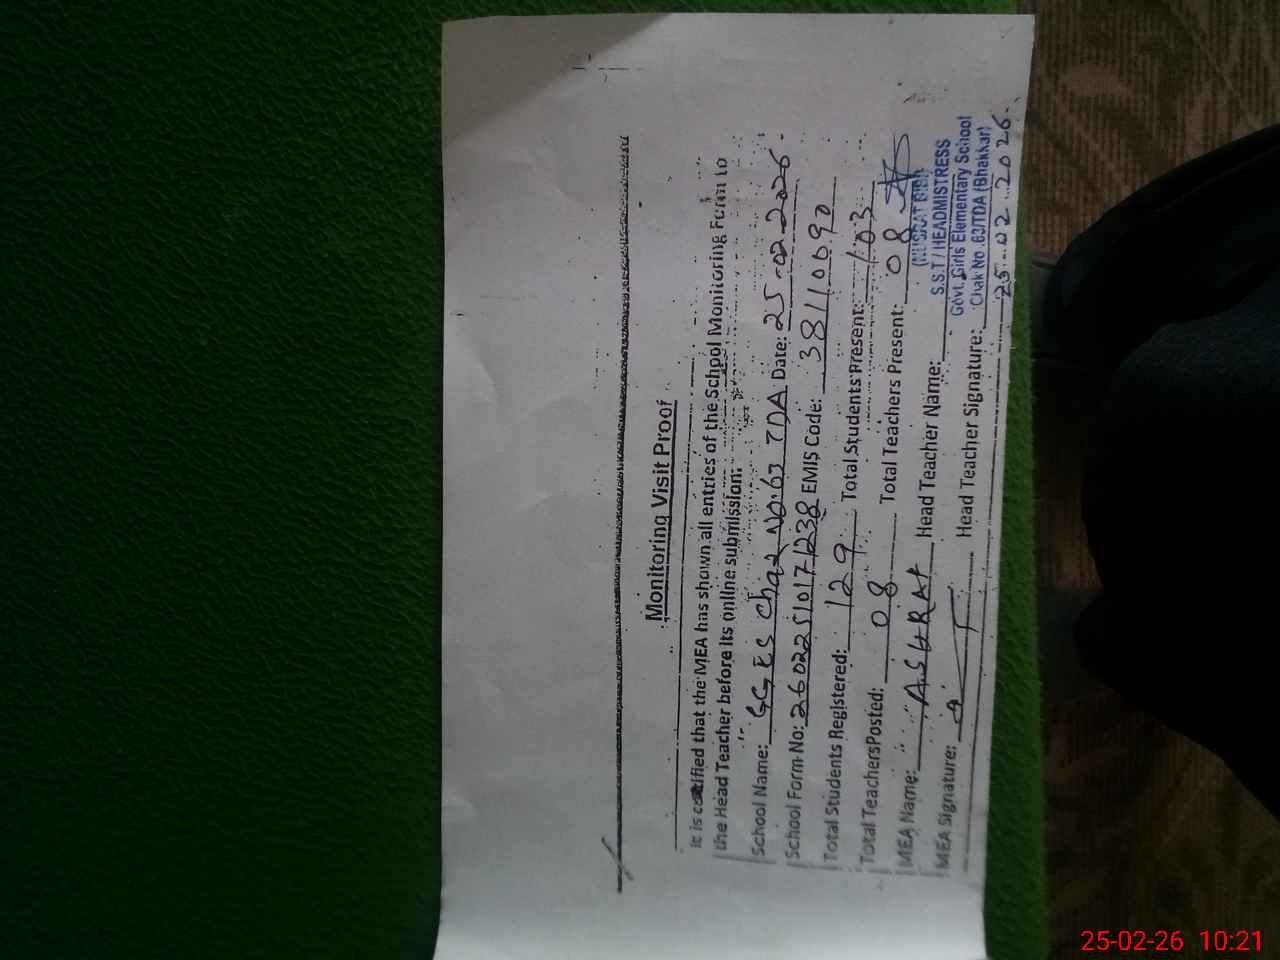 Monitoring Visit Proof
It is certified that the MEA has shown all entries of the School Monitoring Form to
the Head Teacher before its online submission:
School Name: GGES Chak No.63 TDA Date: 25-02-2026
School Form No: 26022510171238 EMIS Code: 38110090
Total Students Registered: 129 Total Students Present: 103
Total TeachersPosted: 08 Total Teachers Present: 08
MEA Name: ASHRAF Head Teacher Name:
(NUSRAT BIBI)
S.S.T / HEADMISTRESS
Govt. Girls Elementary School
Chak No.63/TDA (Bhakkar)
MEA Signature: Head Teacher Signature:
25.02.2026
25-02-26 10:21